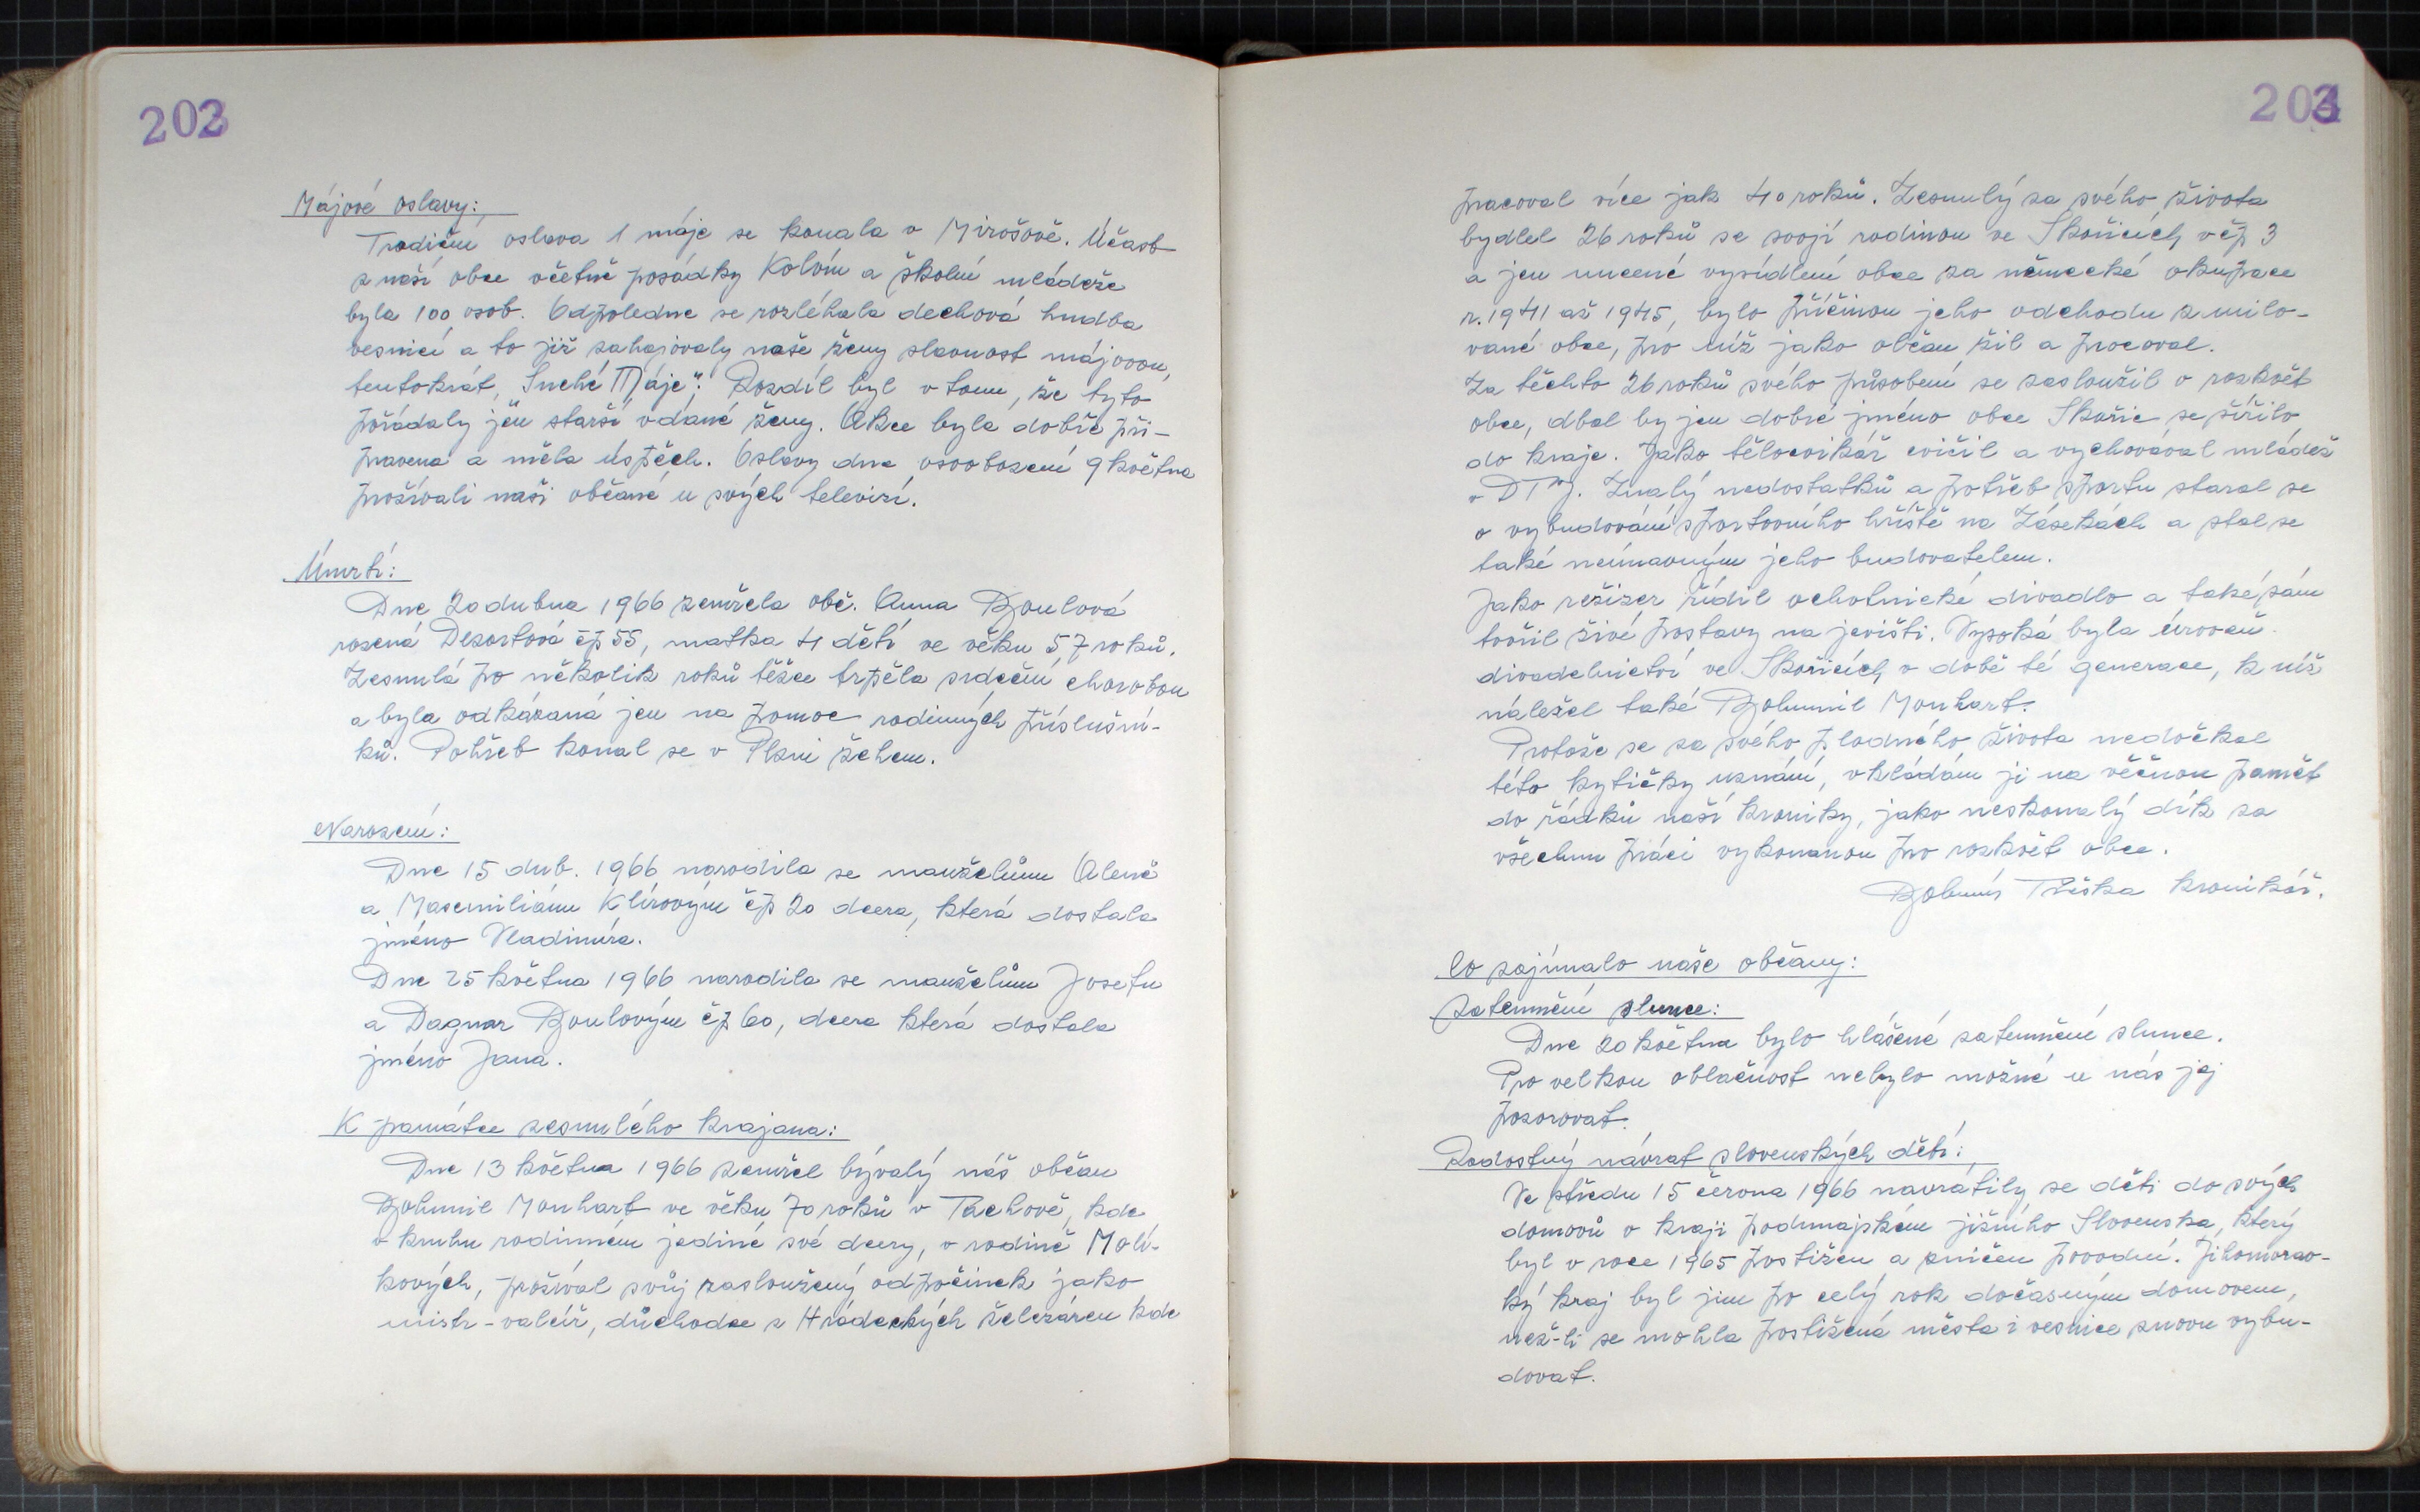 202
Májové oslavy:
Tradiční oslava 1 máje se konala v Mirošově. Účast
z naší obce včetně posádky Kolvín a školní mládeže
byla 100 osob. Odpoledne se rozléhala dechová hudba
vesnicí a to již zahajovaly naše ženy slavnost májovou,
tentokrát, Suché Máje". Rozdíl byl v tom, že tyto
pořádaly jen starší vdané ženy. Akce byla dobře při-
pravena a měla úspěch. Oslavy dne osvobození 9 května
prožívali naši občané u svých televizí.
Úmrtí:
Dne 20 dubna 1966 zemřela obč. Anna Boulová
rozená Dezortová čp 55, matka 4 dětí ve věku 57 roků.
Zesnulá po několik roků těžce trpěla srdeční chorobou
a byla odkázaná jen na pomoc rodinných příslušní-
ků. Pohřeb konal se v Plzni žehem.
Narození:
Dne 15 dub. 1966 narodila se manželům Aleně
a Maxmiliánu Klírovým čp 20 dcera, která dostala
jméno Vladimíra.
Dne 25 května 1966 narodila se manželům Josefu
a Dagmar Boulovým čp 60, dcera která dostala
jméno Jana.
K památce zesnulého krajana:
Dne 13 května 1966 zemřel bývalý náš občan
Bohumil Monhart ve věku 70 roků v Tachově, kde
v kruhu rodinném jediné své dcery, v rodině Molí-
kových, prožíval svůj zasloužený odpočinek jako
mistr-valcíř, důchodce z Hrádeckých železáren kde
203
pracoval více jak 40 roků. Zesnulý za svého života
bydlel 26 roků se svojí rodinou ve Skořicích v čp 3
a jen nucené vysídlení obce za německé okupace
r. 1941 až 1945, bylo příčinou jeho odchodu z milo-
vané obce, pro níž jako občan žil a pracoval.
Za těchto 26 roků svého působení se zasloužil o rozkvět
obce, dbal by jen dobré jméno obce Skořic se šířilo
do kraje. Jako tělocvikář cvičil a vychovával mládež
v DTJ. Znalý nedostatků a potřeb sportu staral se
o vybudování sportovního hřiště na Zásekách a stal se
také neúnavným jeho budovatelem.
Jako režizer řídil ochotnické divadlo a také sám
tvořil živé postavy na jevišti. Vysoká byla úroveň
divadelnictví ve Skořicích v době té generace, k níž
náležel také Bohumil Monhart.
Protože se za svého plodného života nedočkal
této kytičky uznání, vkládám ji na věčnou paměť
do řádků naší kroniky, jako neskonalý dík za
všechnu práci vykonanou pro rozkvět obce.
Bohumír Treška kronikář.
Co zajímalo naše občany:
Zatemnění slunce:
Dne 20 května bylo hlášené zatemnění slunce.
Pro velkou oblačnost nebylo možné u nás jej
pozorovat.
Radostný návrat slovenských dětí:
Ve středu 15 června 1966 navrátily se děti do svých
domovů v kraji podunajském jižního Slovenska, který
byl v roce 1965 postižen a zničen povodní. Jihomorav-
ký kraj byl jim po celý rok dočasným domovem,
než-li se mohla postižená města i vesnice znovu vybu-
dovat.